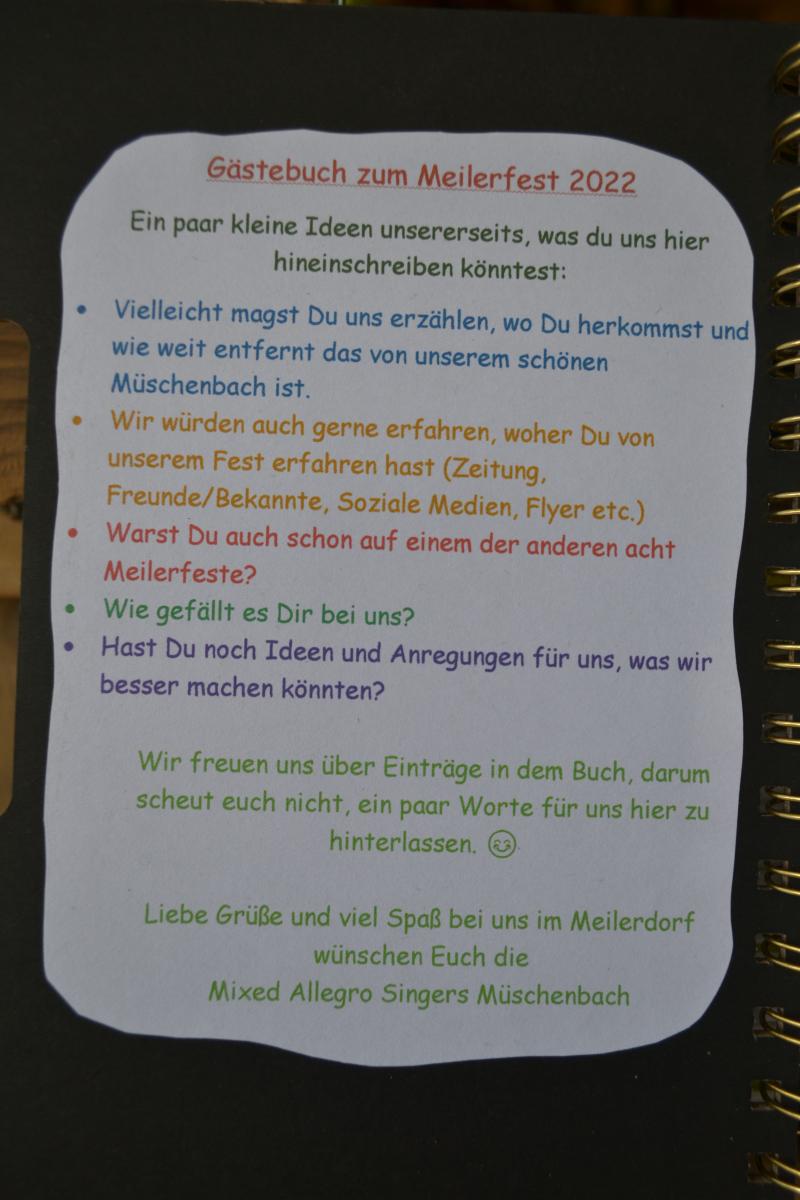 Gästebuch zum Meilerfest 2022
Ein paar kleine Ideen unsererseits, was du uns hier
hineinschreiben könntest:
• Vielleicht magst Du uns erzählen, wo Du herkommst und
wie weit entfernt das von unserem schönen
Müschenbach ist.
• Wir würden auch gerne erfahren, woher Du von
unserem Fest erfahren hast (Zeitung,
Freunde/Bekannte, Soziale Medien, Flyer etc.)
• Warst Du auch schon auf einem der anderen acht
Meilerfeste?
• Wie gefällt es Dir bei uns?
• Hast Du noch Ideen und Anregungen für uns, was wir
besser machen könnten?
Wir freuen uns über Einträge in dem Buch, darum
scheut euch nicht, ein paar Worte für uns hier zu
hinterlassen. 😊
Liebe Grüße und viel Spaß bei uns im Meilerdorf
wünschen Euch die
Mixed Allegro Singers Müschenbach